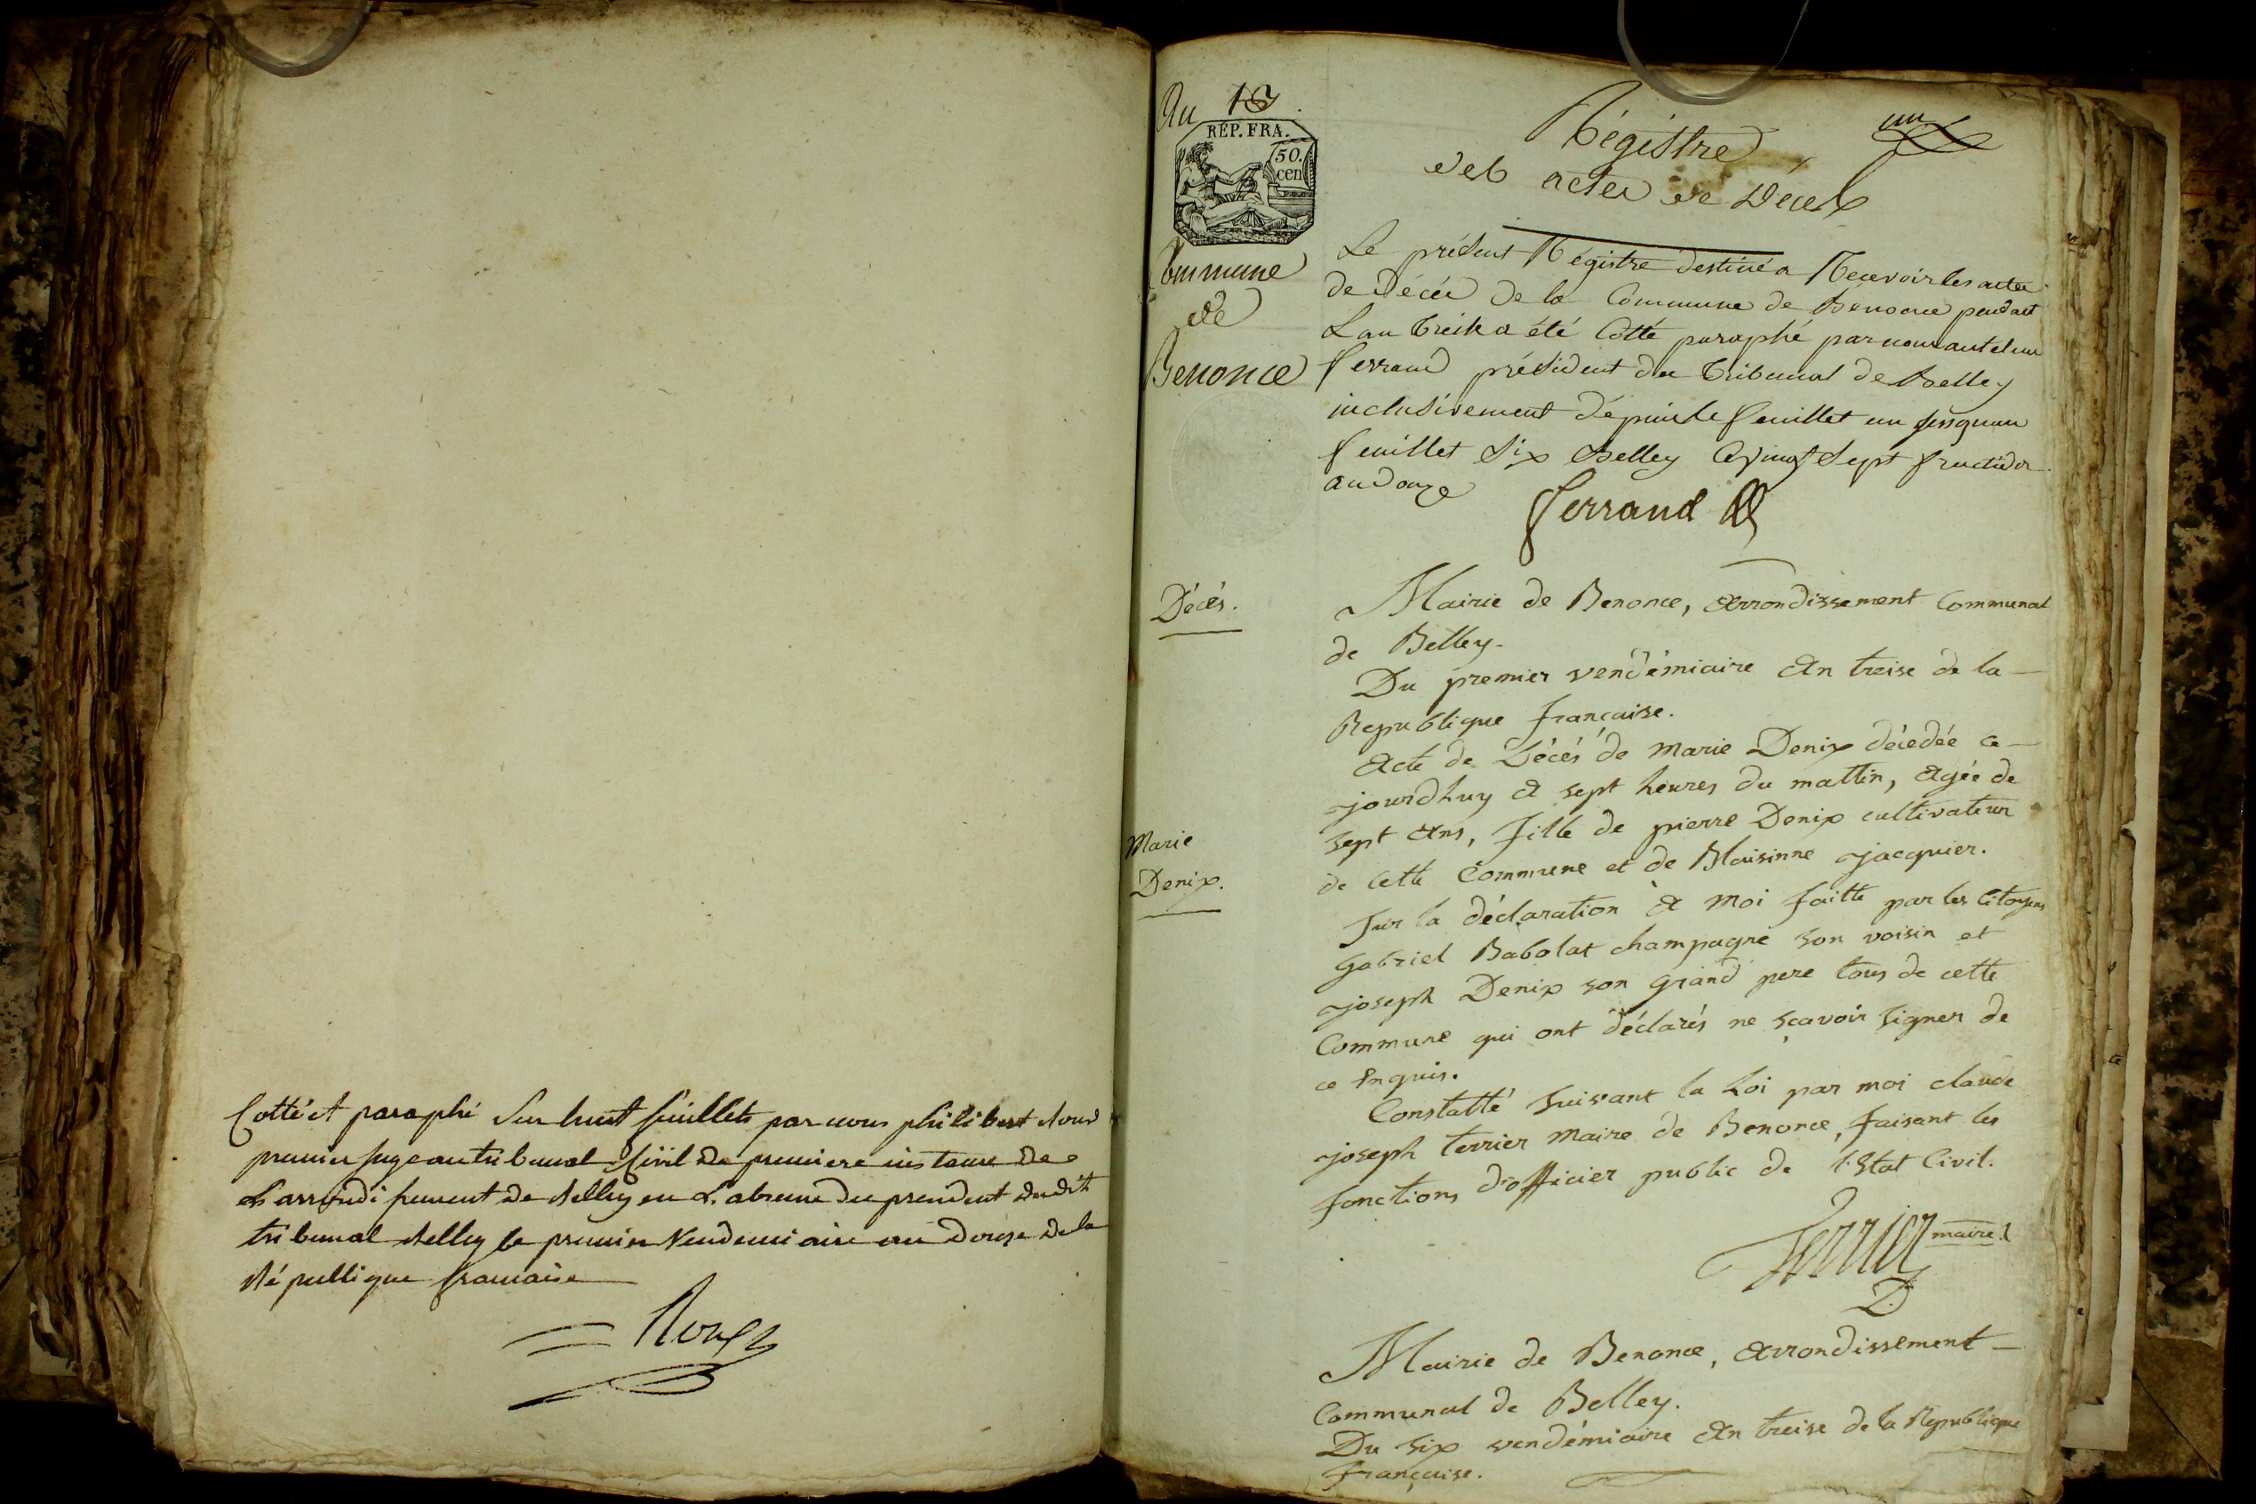 Cotté et paraphé Sur huit feuillets par nous philibert
premier juge au tribunal Civil de premiere instance de
L'arrondissement de Belley en L'absence du president dudit
tribunal Belley le premier Vendemiaire an douze de la
République francaise
An 13
RÉP. FRA.
50.
cen
Commune
de
Benonce
un
Régistre
des actes de Décès
Le présent Régistre destiné a Recevoir les actes
de Décès de la Commune de Benonce pendant
L'an treize a été Cotté paraphé par nous anthelme
ferrand président du tribunal de Belley
inclusivement dépuis le feuillet un jusquau
feuillet Six Belley Ce vingt Sept fructidor
an douze
ferrand
Décès.
Mairie de Benonce, arrondissement Communal
de Belley.
Du premier vendémiaire an treise de la
Republique française.
Marie
Denix.
Acte de Décés de Marie Denix décedée ce
jourdhuy a sept heures du mattin, agée de
sept ans, fille de pierre Denix cultivateur
de cette Commune et de Blaisinne jacquier.
Sur la déclaration à moi faitte par les Citoyens
gabriel Babolat champagne son voisin et
joseph Denix son grand pere tous de cette
Commune qui ont déclarés ne sçavoir signer de
ce enquis.
Constatté suivant la Loi par moi claude
joseph terrier Maire de Benonce, faisant les
fonctions d'officier public de l'Etat Civil.
Terrier maire
Mairie de Benonce, arrondissement
Communal de Belley.
Du six vendémiaire an treise de la Republique
française.